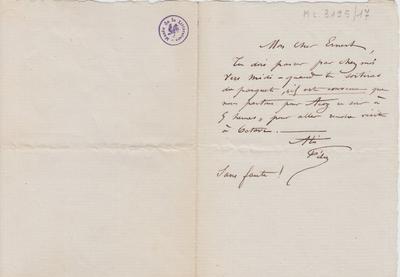 ML 3195/17
Mon Cher Ernest,
Tu dois passer par chez moi
vers midi – quand tu sortiras
du parquet, s'il est convenu que
nous partons pour ce soir à
5 heures, pour aller rendre visite
à Octave.
Sans faute!